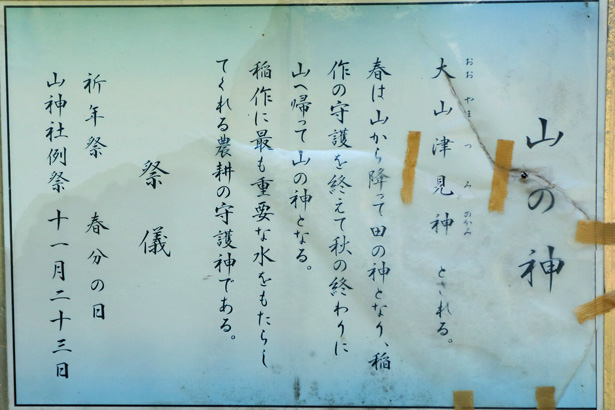 山の神
大山津見神とされる。
おおやまつみのかみ
春は山から降って田の神となり、稲
作の守護を終えて秋の終わりに
山へ帰って山の神となる。
稲作に最も重要な水をもたらし
てくれる農耕の守護神である。
祭儀
祈年祭 春分の日
山神社例祭 十一月二十三日